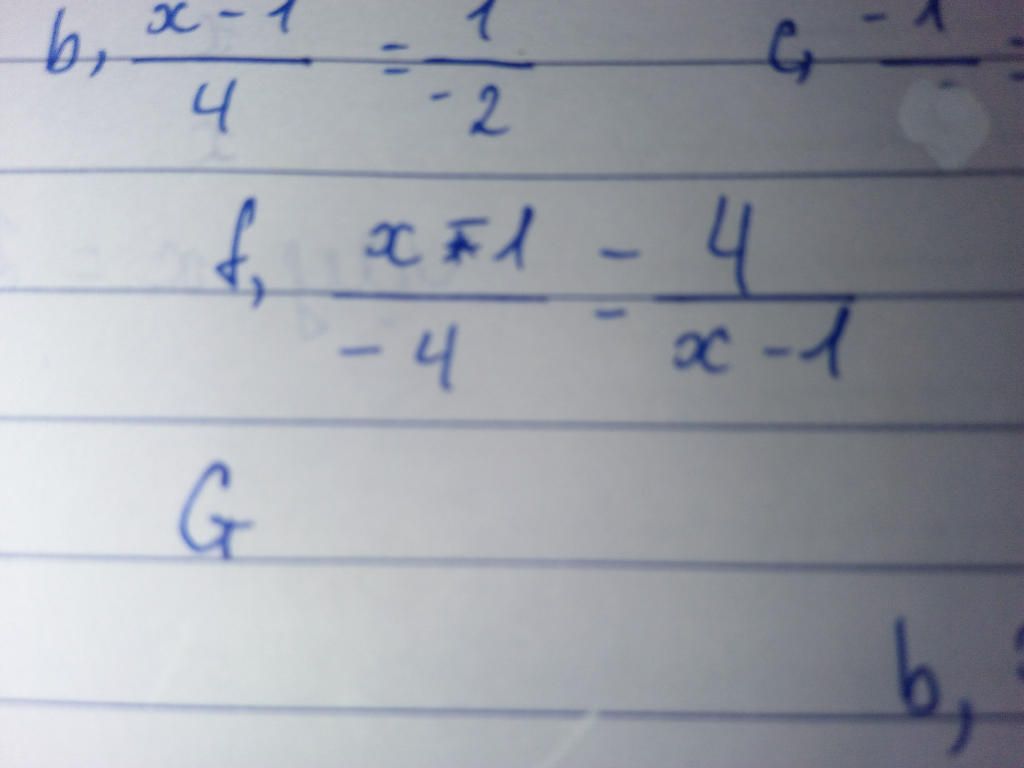 b, x - 1 / 4 = 1 / -2 c, -1
f, x - 1 / -4 = 4 / x - 1
G
b,